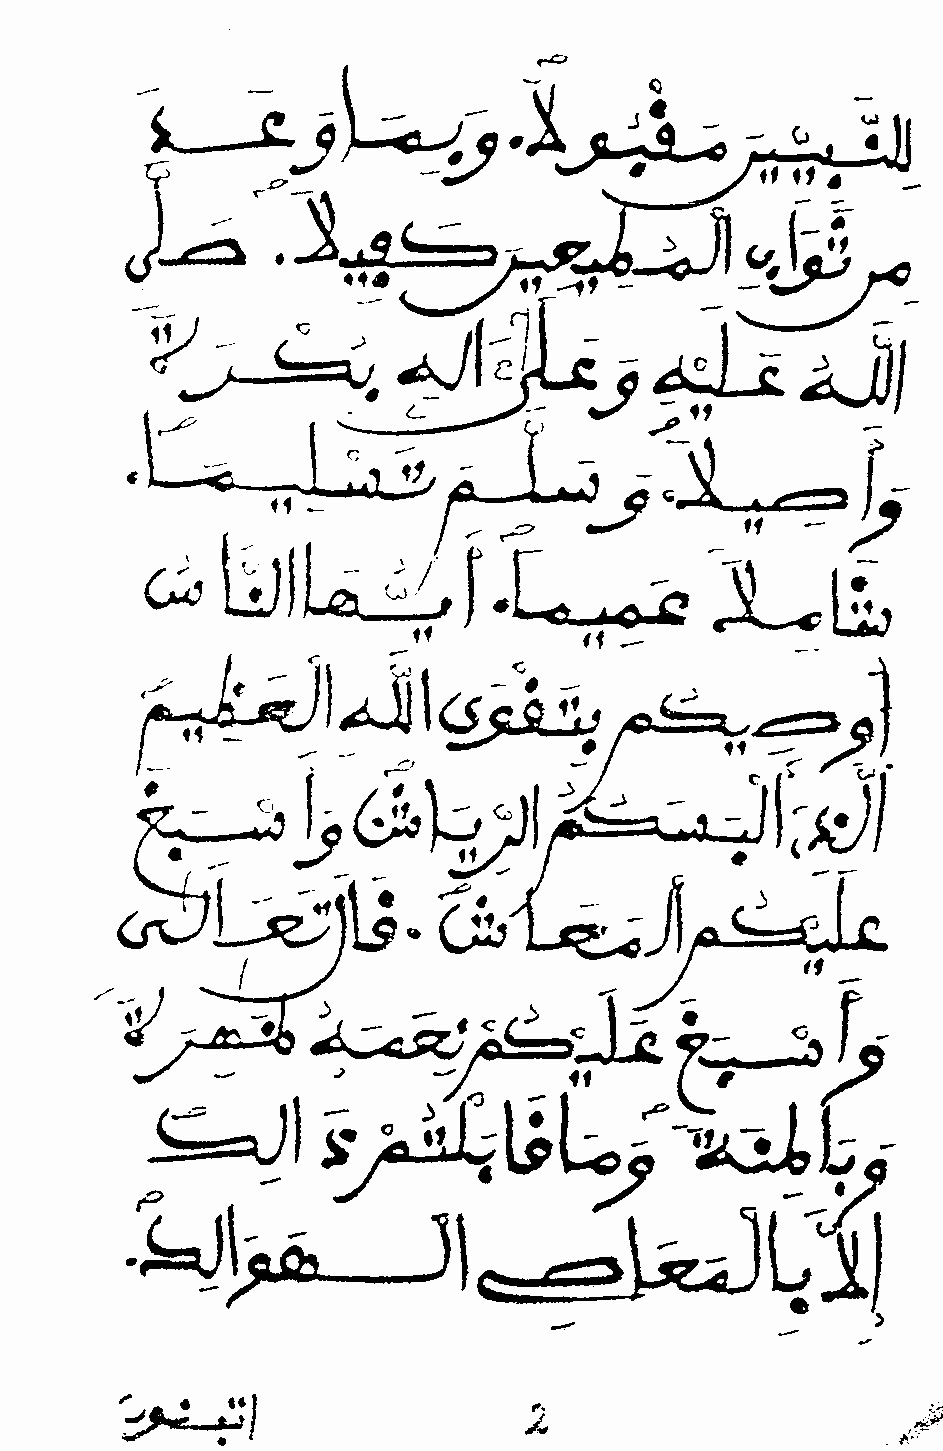 لِلنَّبِيِّينَ مَقْبُولاً. وَبِمَا وَعَدَ
مِن ثَوَابِ الْمُطِيعِينَ كَفِيلاً. صَلَّى
اللَّهُ عَلَيْهِ وَعَلَى ءَالِهِ بُكْرَةً
وَأَصِيلاً. وَسَلَّمَ تَسْلِيمًا.
شَامِلاً عَمِيماً. أَيُّهَا النَّاسُ
أُوصِيكُم بِتَقْوَى اللَّهِ الْعَظِيمِ
الَّذِى أَلْبَسَكُمُ الرِّيَاشَ وَأَسْبَغَ
عَلَيْكُمُ الْمَعَاشَ. قَالَ تَعَالَى
وَأَسْبَغَ عَلَيْكُمْ نِعَمَهُ ظَهِرَةً
وَبَاطِنَةً وَمَا قَابَلْتُمْ ذَ الِكَ
إِلاَّ بِالْمَعَاصِى السهوالك.
2